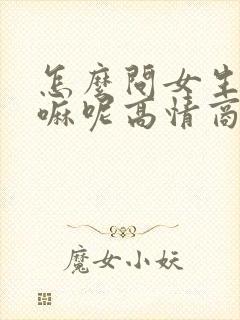 怎麼問女生
嘛呢高情商
魔女小妖